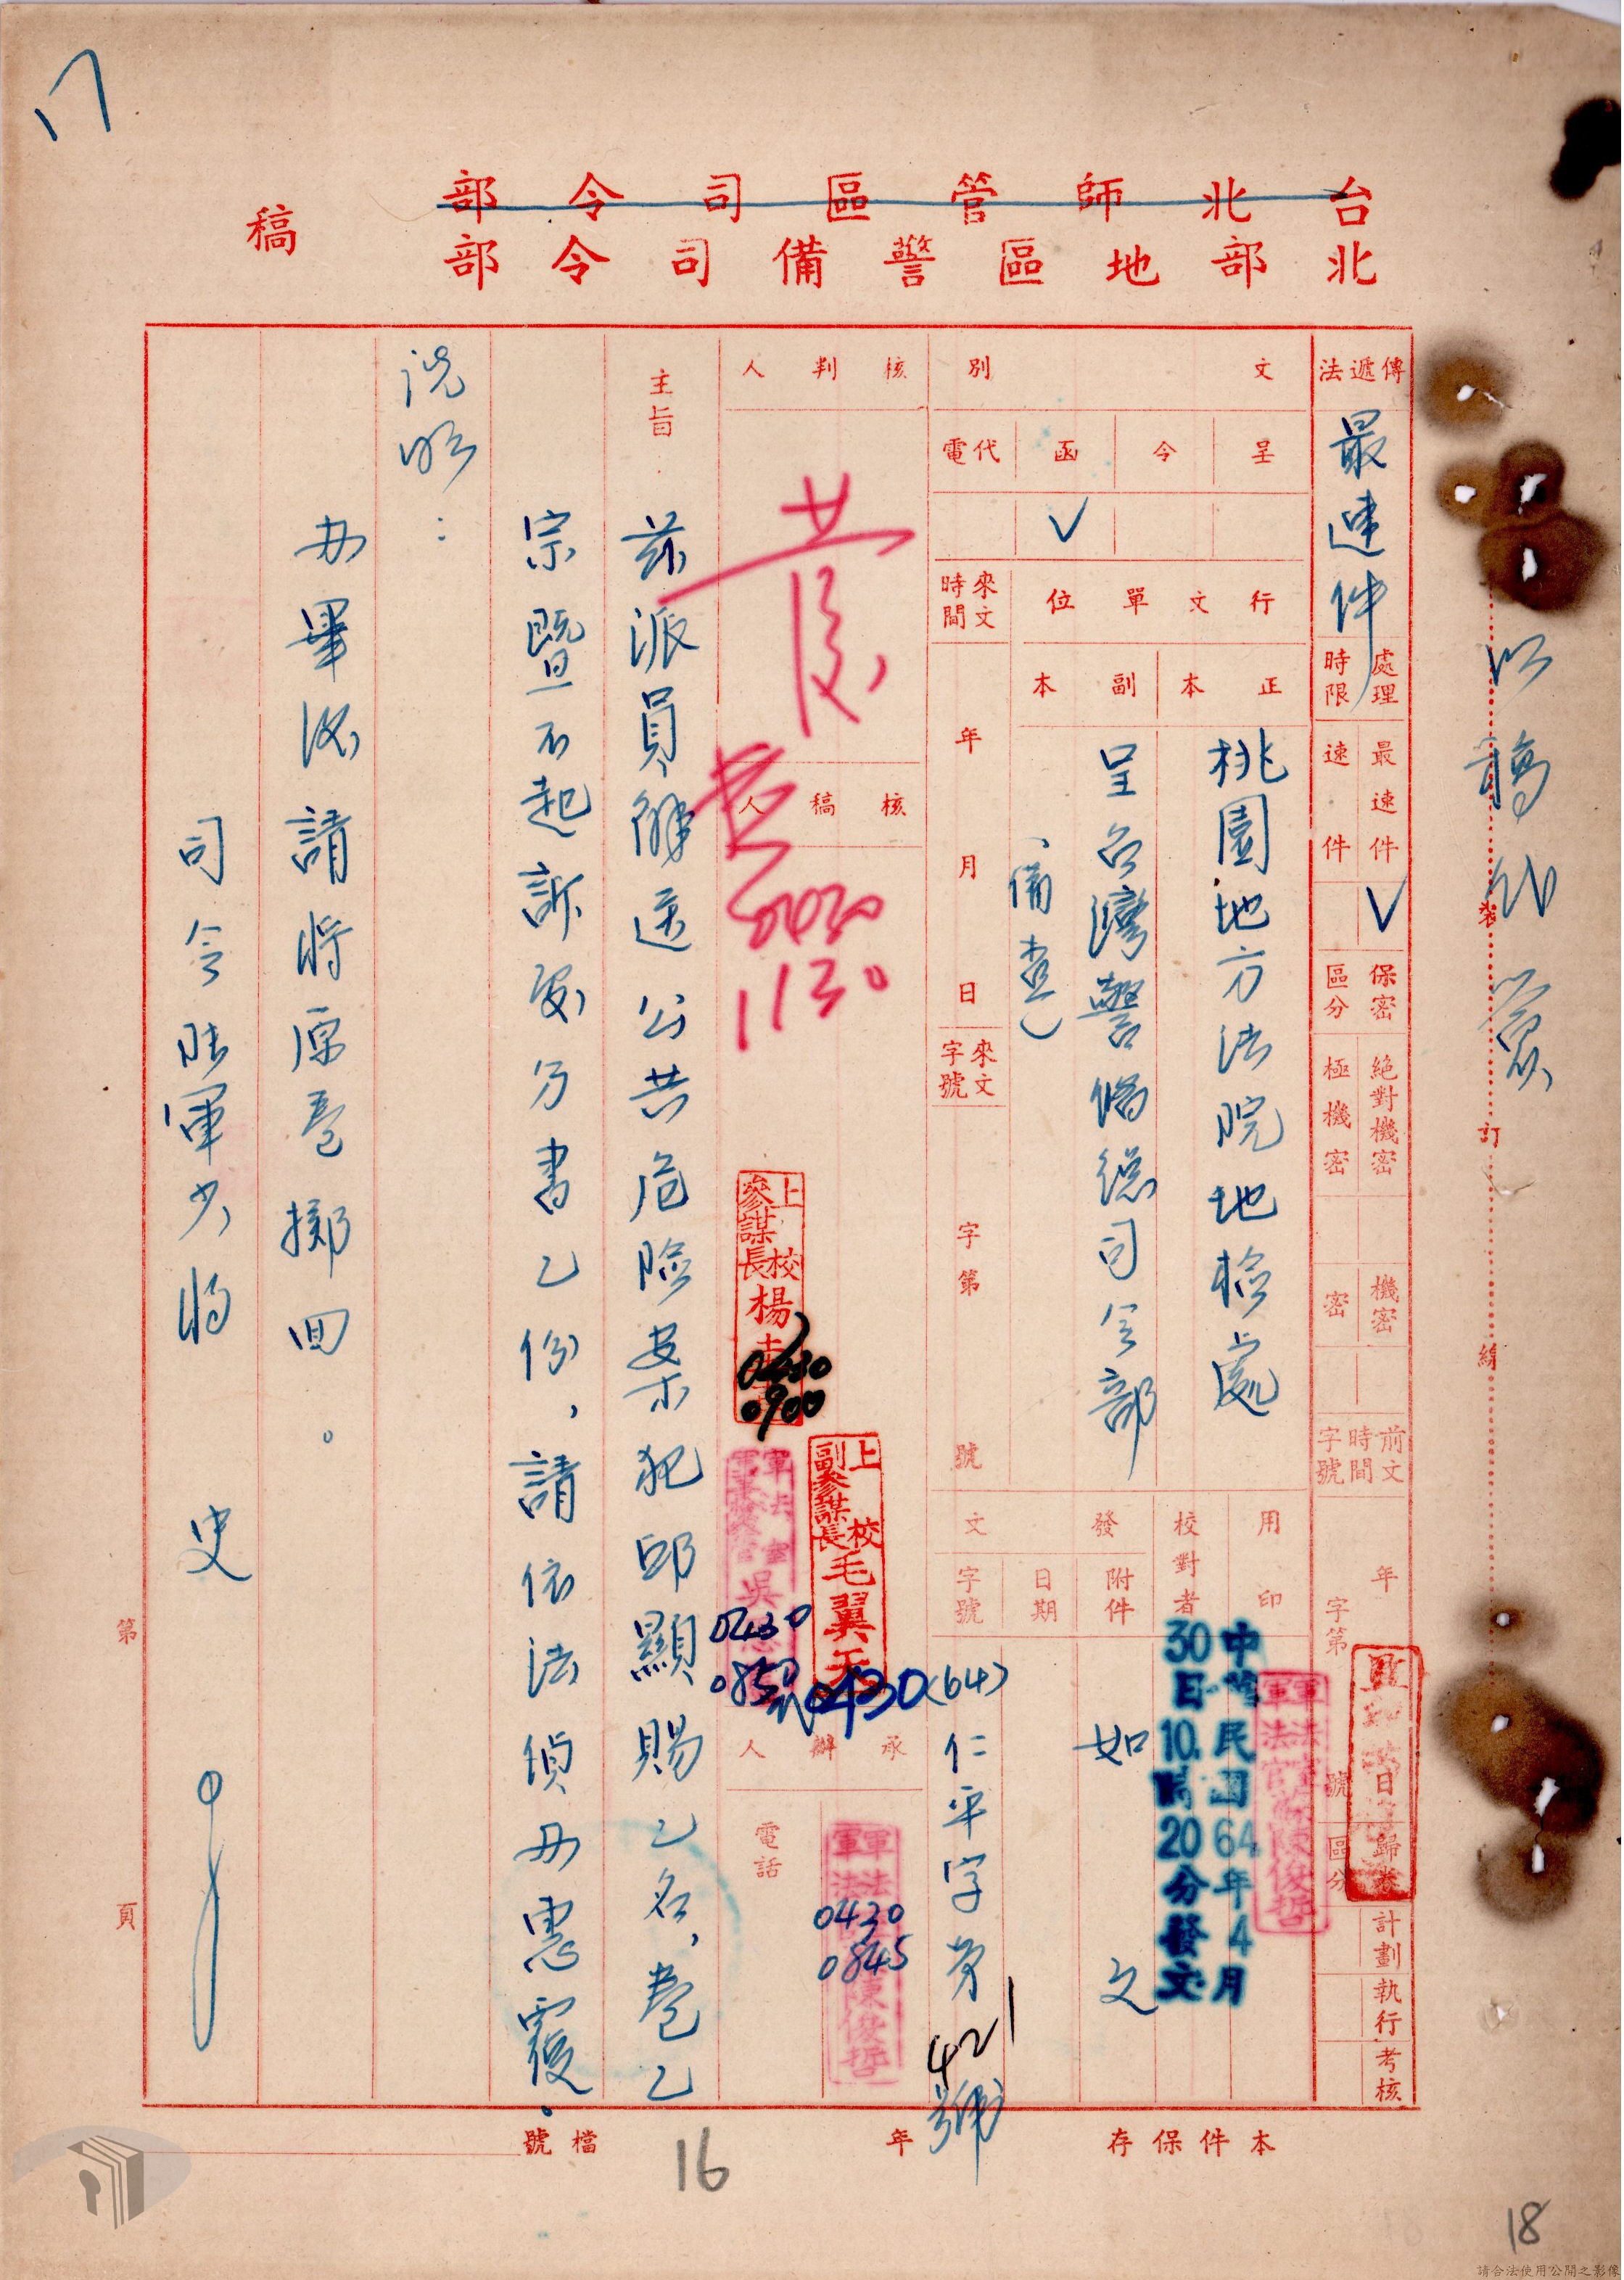 17
台北師管區司令部
北部地區警備司令部
稿
以稿代簽
裝
訂
線
傳遞法
最速件
處理時限
最速件
速件
保密區分
絕對機密
極機密
機密
密
前文時間字號
年
月
日
字第
號
歸檔區分
計劃
執行
考核
文別
呈
令
函
代電
行文單位
正本
副本
桃園地方法院地檢處
呈台灣警備總司令部
(備查)
來文時間
年
月
日
來文字號
字第
號
用印
校對者
發文
附件
日期
字號
中華民國64年4月
30日10時20分發文
軍法室
軍法官陳俊哲
如文
(64)仁平字第421號
核判人
核稿人
0430
1130
上校
參謀長楊
0430
0900
上校
副參謀長毛翼天
0430
軍法室
吳
0430
0850
承辦人
電話
軍法室
軍法官陳俊哲
0430
0845
主旨
茲派員解送公共危險案犯邱顯賜乙名,卷乙
宗暨不起訴處分書乙份,請依法偵辦惠覆。
說明:
办畢後請將原卷擲回。
司令陸軍少將 史
第
頁
本件保存
年
檔號
16
18
請合法使用公開之影像